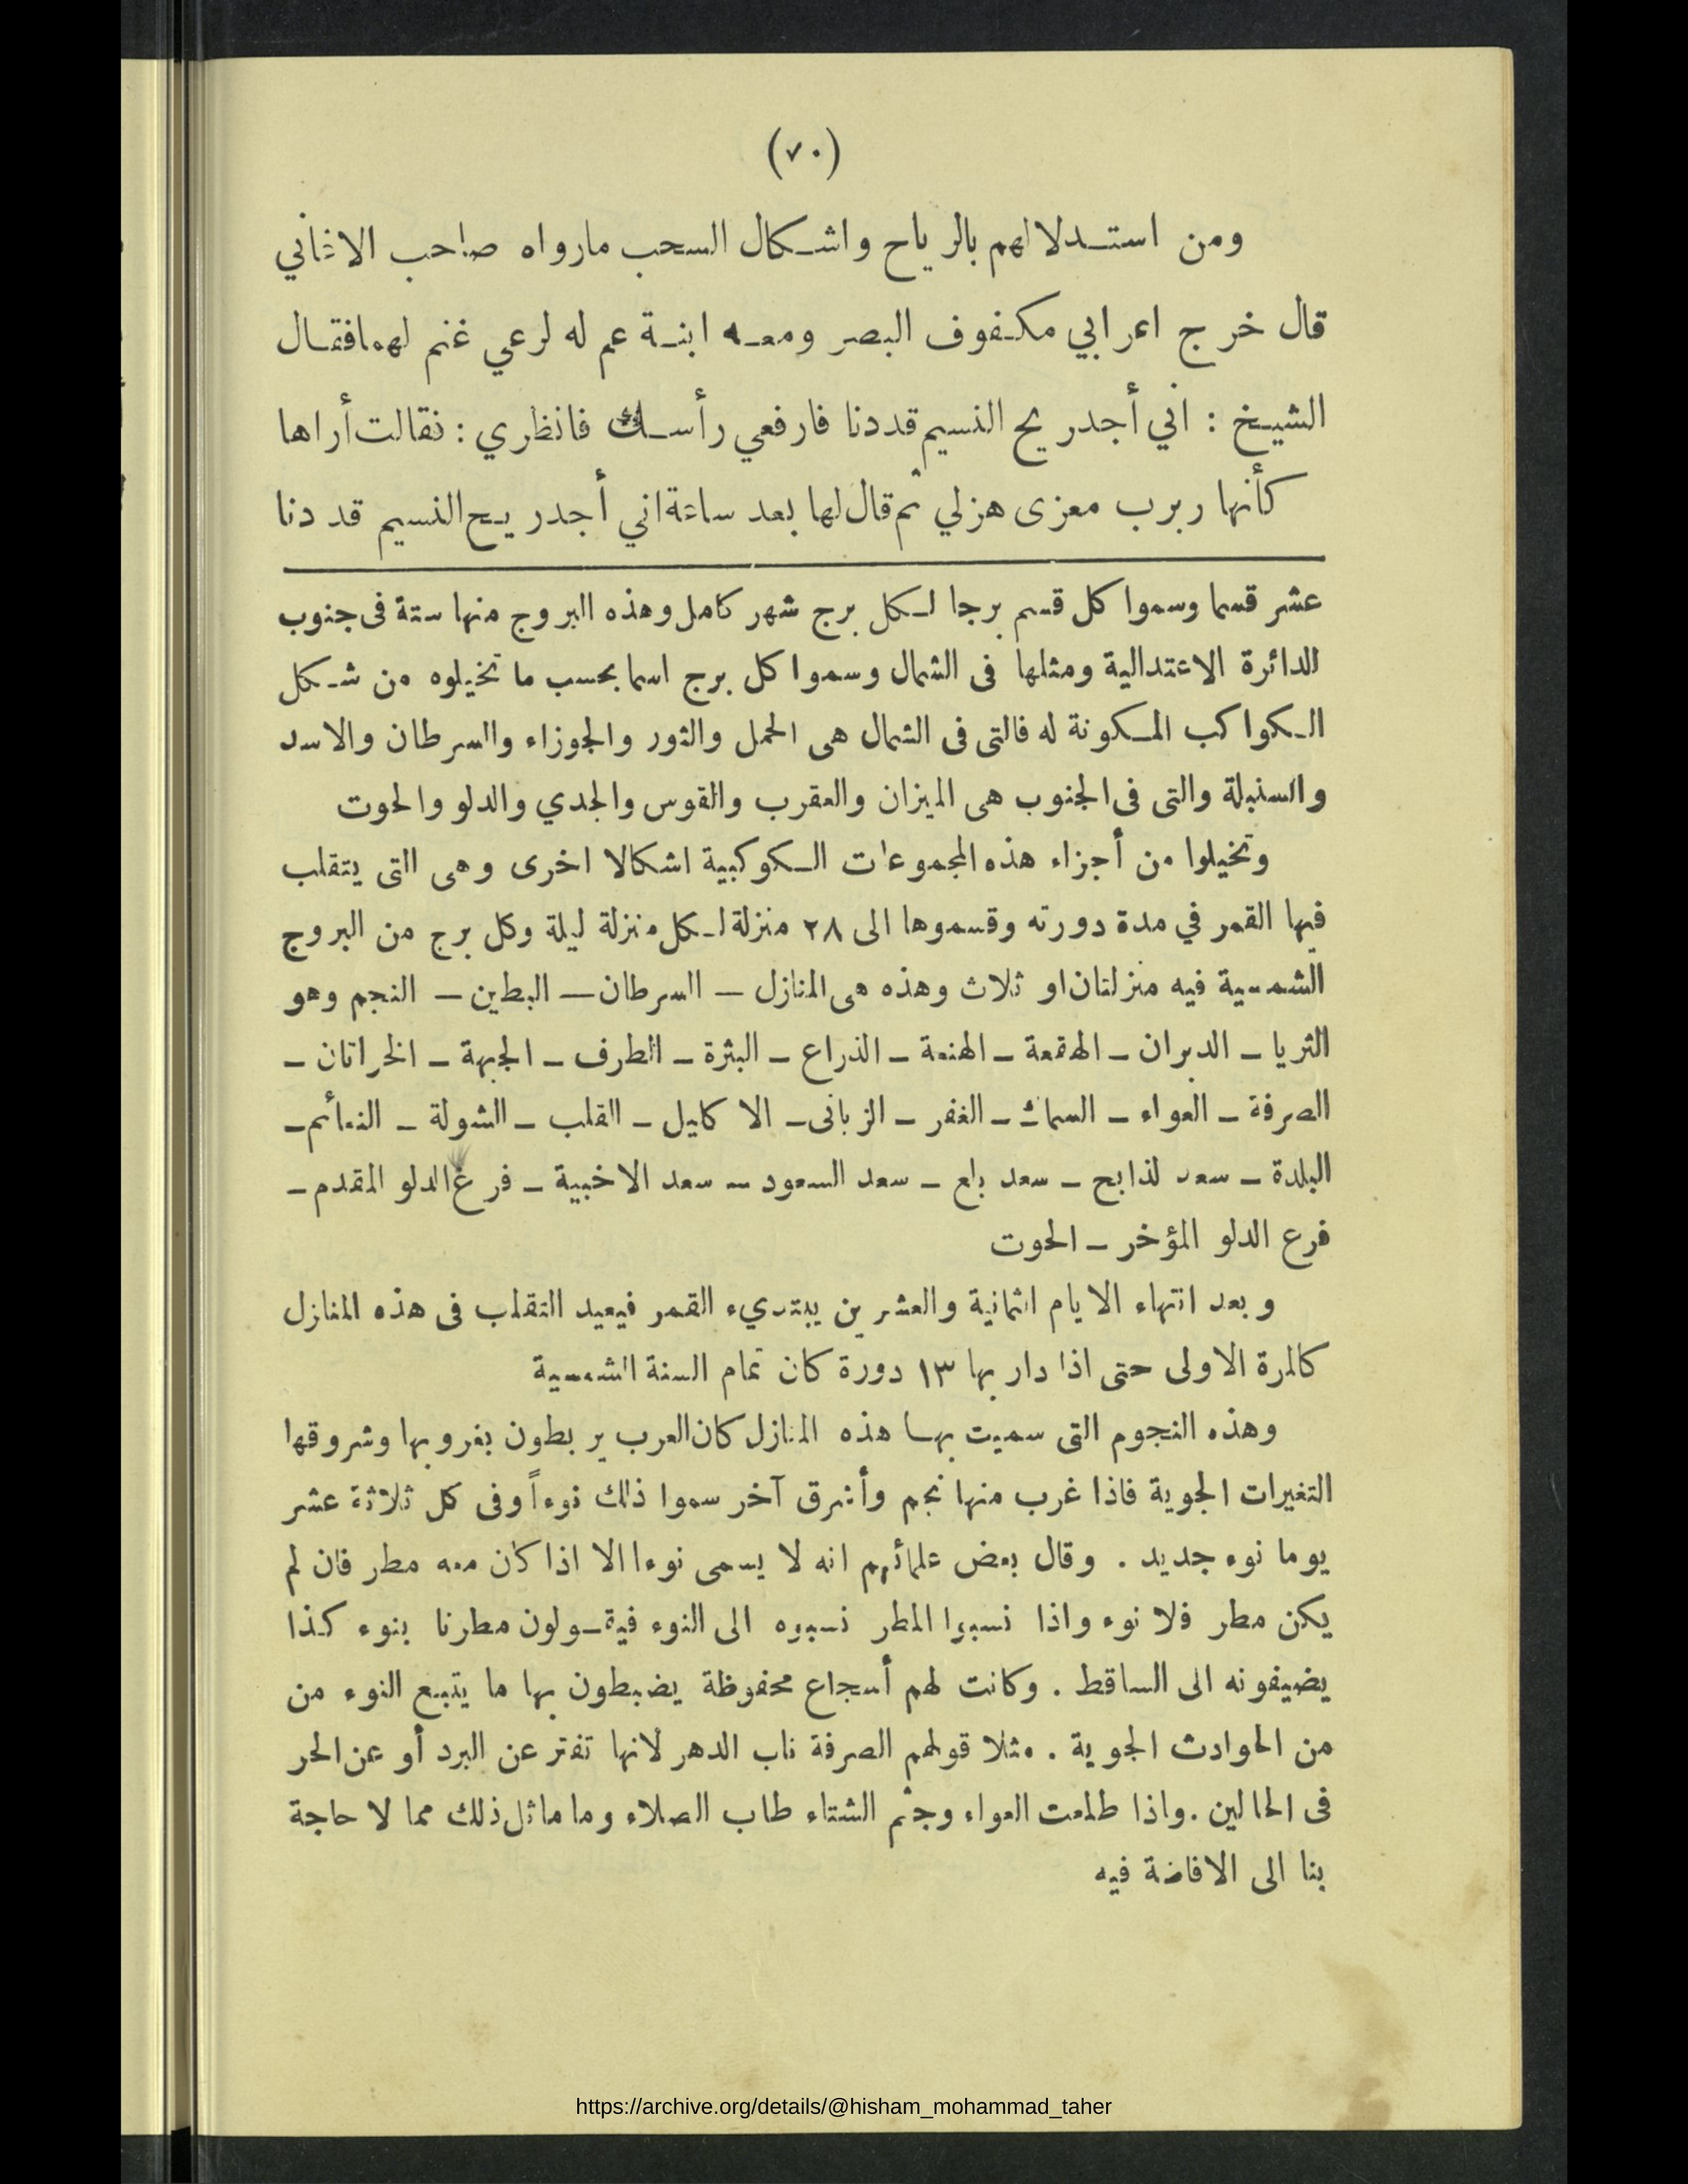 (٧٠)
ومن استدلالهم بالرياح واشكال السحب مارواه صاحب الاغاني
قال خرج اعرابي مكفوف البصر ومعه ابنة عم له لرعي غنم لهمافقال
الشيخ : اني أجدريح النسيم قددنا فارفعي رأسك فانظري : نقالت أراها
كأنها ربرب معزى هزلي ثم قال لها بعد ساعة اني أجدريح النسيم قد دنا
عشر قسما وسموا كل قسم برجا لكل برج شهر كامل وهذه البروج منها ستة فى جنوب
الدائرة الاعتدالية ومثلها فى الشمال وسموا كل برج اسما بحسب ما تخيلوه من شكل
الكواكب المكونة له فالتى فى الشمال هى الحمل والثور والجوزاء والسرطان والاسد
والسنبلة والتى فى الجنوب هى الميزان والعقرب والقوس والجدي والدلو والحوت
وتخيلوا من أجزاء هذه المجموعات الكوكبية اشكالا اخرى وهى التى يتقلب
فيها القمر في مدة دورته وقسموها الى ٢٨ منزلة لكل منزلة ليلة وكل برج من البروج
الشمسية فيه منزلتان او ثلاث وهذه هى المنازل – السرطان – البطين – النجم وهو
الثريا – الدبران – الهقعة – الهنعة – الذراع – البثرة – الطرف – الجبهة – الخراتان –
الصرفة – العواء – السماك – الغفر – الزبانى – الاكايل – القلب – الشولة – النعائم –
البلدة – سعد لذابح – سعد بلع – سعد السعود – سعد الاخبية – فرغ الدلو المقدم –
فرع الدلو المؤخر – الحوت
وبعد انتهاء الايام الثمانية والعشرين يبتديء القمر فيعيد التقلب فى هذه المنازل
كالمرة الاولى حتى اذا دار بها ١٣ دورة كان تمام السنة الشمسية
وهذه النجوم التى سميت بها هذه المنازل كان العرب يربطون بغروبها وشروقها
التغيرات الجوية فاذا غرب منها نجم وأشرق آخر سموا ذلك نوءاً وفى كل ثلاثة عشر
يوما نوء جديد . وقال بعض علمائهم انه لا يسمى نوءا الا اذا كان معه مطر فان لم
يكن مطر فلا نوء واذا نسبوا المطر نسبوه الى النوء فيقولون مطرنا بنوء كذا
يضيفونه الى الساقط . وكانت لهم أسجاع محفوظة يضبطون بها ما يتبع النوء من
من الحوادث الجوية . مثلا قولهم الصرفة ناب الدهر لانها تفتر عن البرد أو عن الحر
فى الحالين . واذا طلعت العواء وجثم الشتاء طاب الصلاء وما ماثل ذلك مما لا حاجة
بنا الى الافاضة فيه
https://archive.org/details/@hisham_mohammad_taher